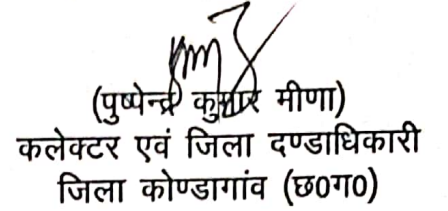 (पुष्पेन्द्र कुमार मीणा)
कलेक्टर एवं जिला दण्डाधिकारी
जिला कोण्डागांव (छ0ग0)